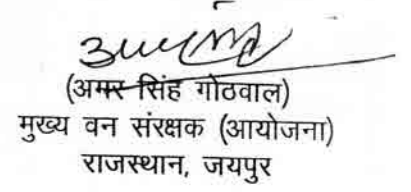 (अमर सिंह गोठवाल)
मुख्य वन संरक्षक (आयोजना)
राजस्थान, जयपुर